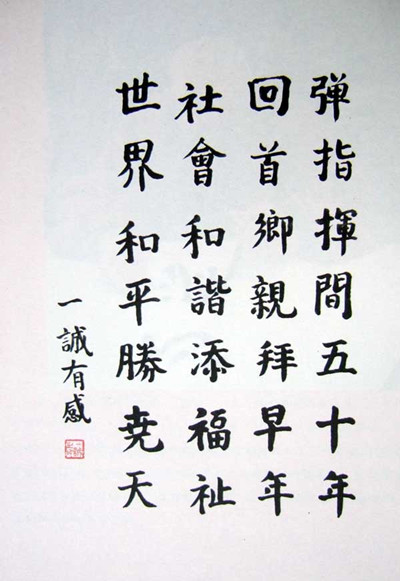 弹指揮間五十年
回首鄉親拜早年
社會和諧添福祉
世界和平勝尭天
一誠有感